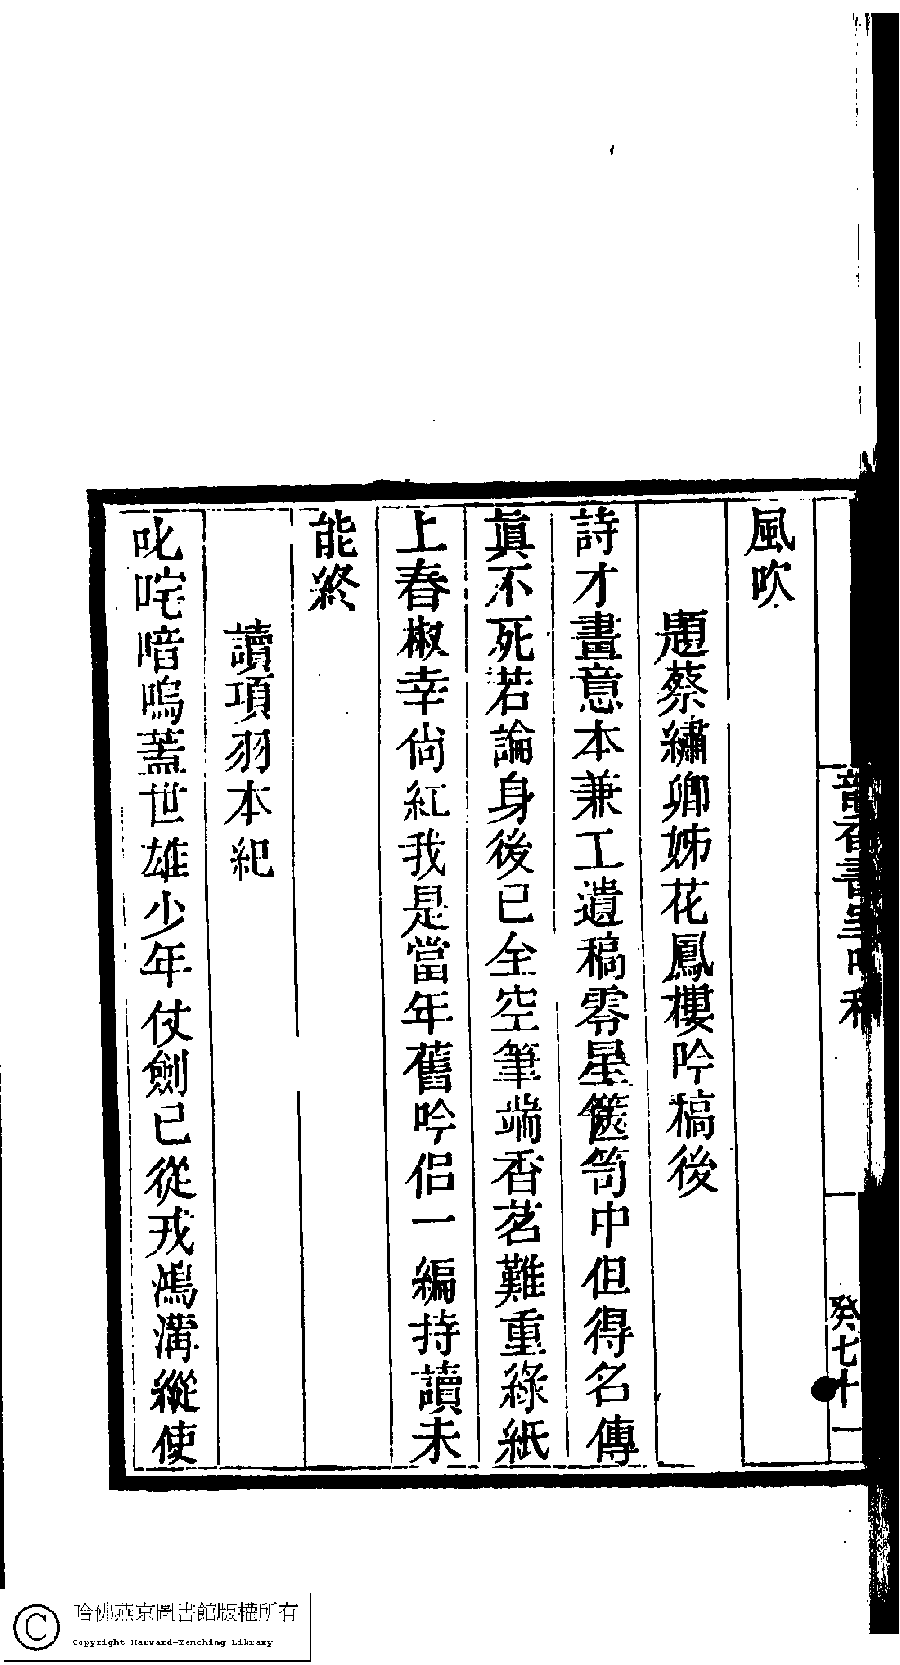 風吹
題蔡繡卿姊花鳳樓吟稿後
詩才畫意本兼工遺稿零星篋笥中但得名傳
眞不死若論身後已全空筆端香茗難重綠紙
上春椒幸尙紅我是當年舊吟侣一編持讀未
能終
讀項羽本紀
叱咤喑嗚蓋世雄少年仗劍已從戎鴻溝縱使
癸七十一
哈佛燕京圖書館版權所有
Copyright Harvard-Yenching Library